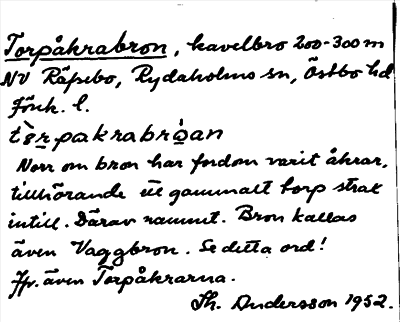 Torpåkrabron, kavelbro 200-300 m
NV Räfsebo, Rydaholms sn, Östbo hd
Jönk. l.
Norr om bron har fordom varit åkrar,
tillhörande ett gammalt torp strax
intill. Därav namnet. Bron kallas
även Vaggbron. Se detta ord!
Jfr. även Torpåkrarna.
Th. Andersson 1952.